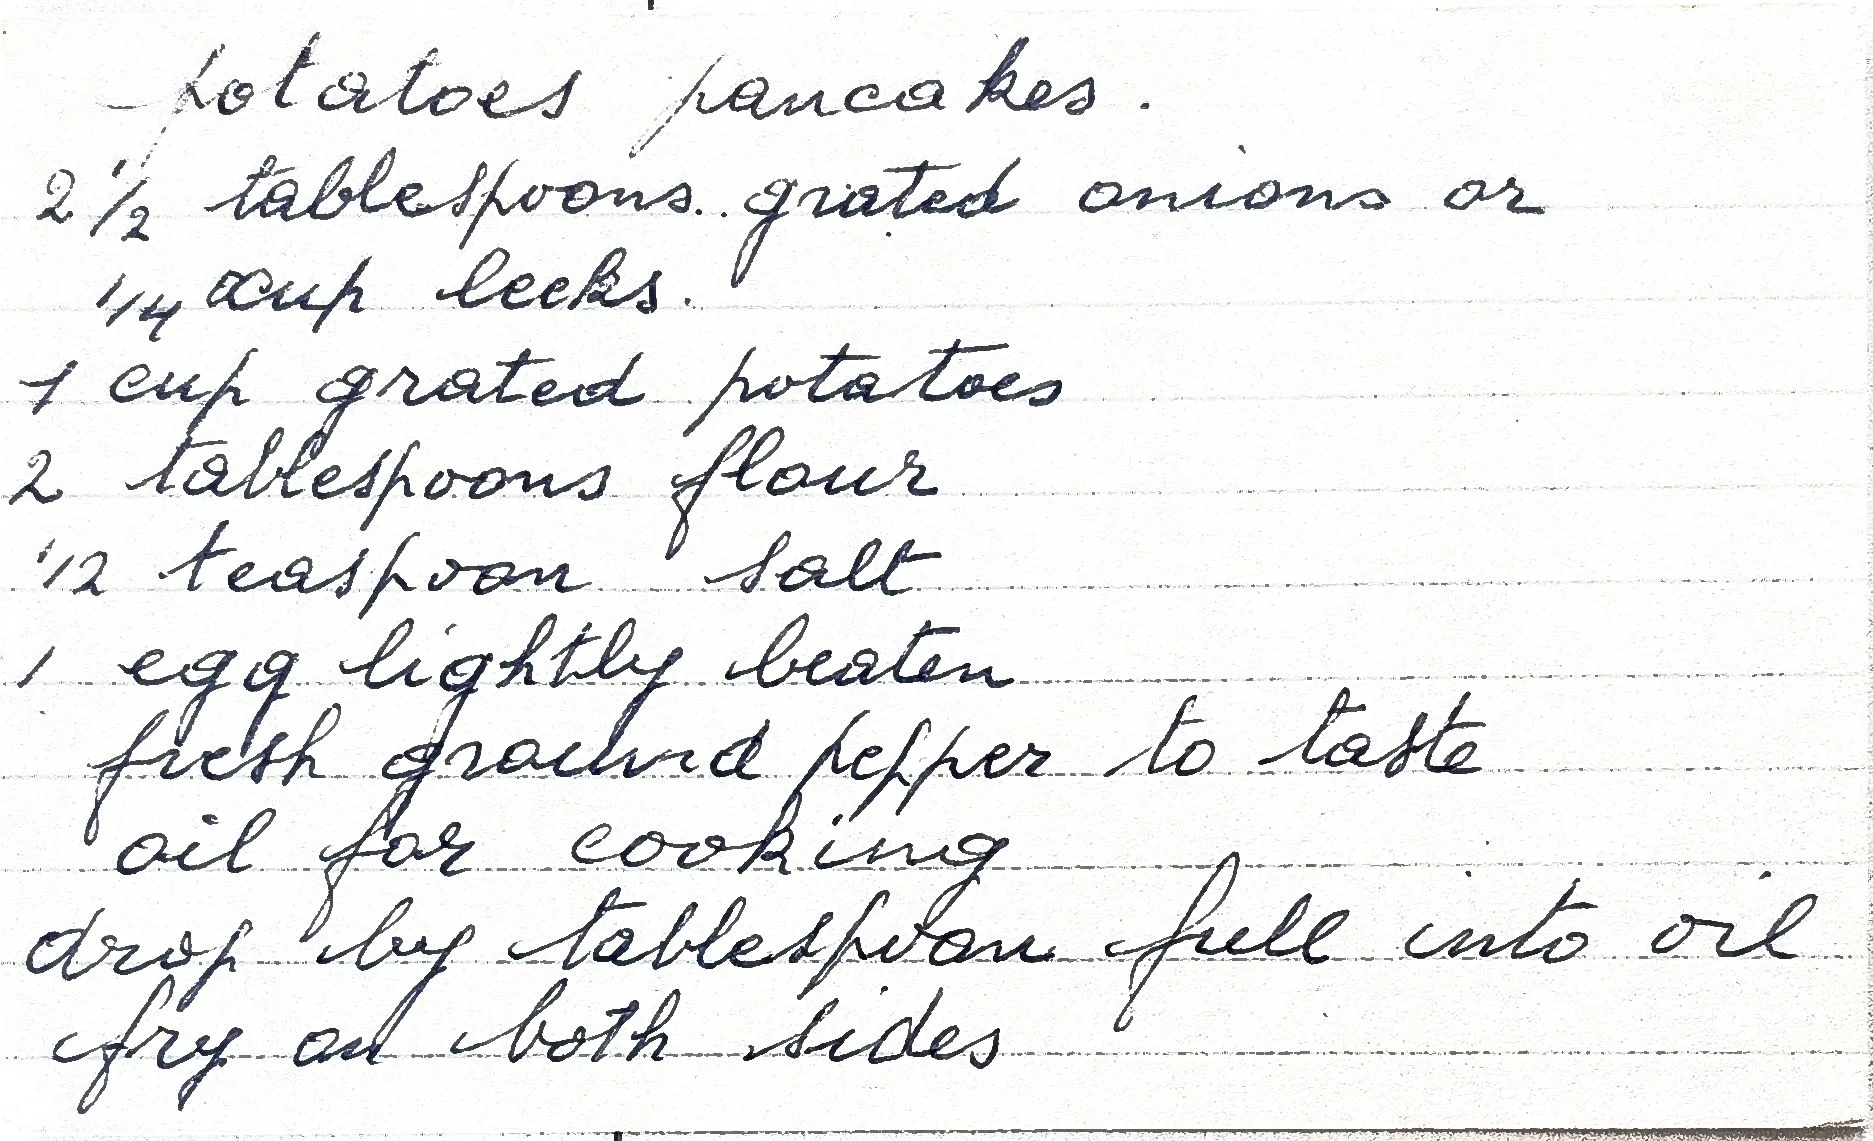 potatoes pancakes.
2 1/2 tablespoons.. grated onions or
1/4 cup leeks.
1 cup grated potatoes
2 tablespoons flour
1/2 teaspoon salt
1 egg lightly beaten
fresh ground pepper to taste
oil for cooking
drop by tablespoon full into oil
fry on both sides